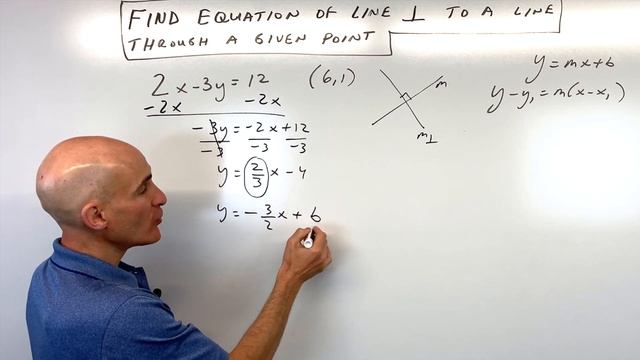 FIND EQUATION OF LINE ⊥ TO A LINE
THROUGH A GIVEN POINT
2x-3y=12 (6,1)
-2x -2x
-3y=-2x+12
-3 -3 -3
y=2/3x-4
y=-3/2x+b
m
m⊥
y=mx+b
y-y₁=m(x-x₁)